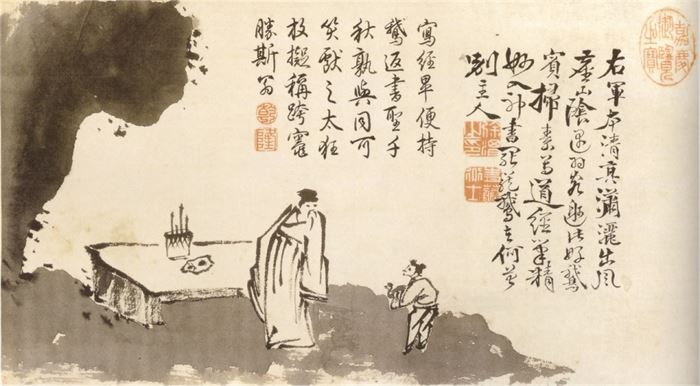 嘉慶御覽之寶
右軍本清真瀟灑出風
塵山陰遇羽客邀此好鵝
賓掃素寫道經筆精
妙入神書罷籠鵝去何曾
別主人
徐渭之印
寫經早便持
鵝返書聖千
秋孰與同可
笑獻之太狂
放擬稱跨竈
勝斯翁
乾隆